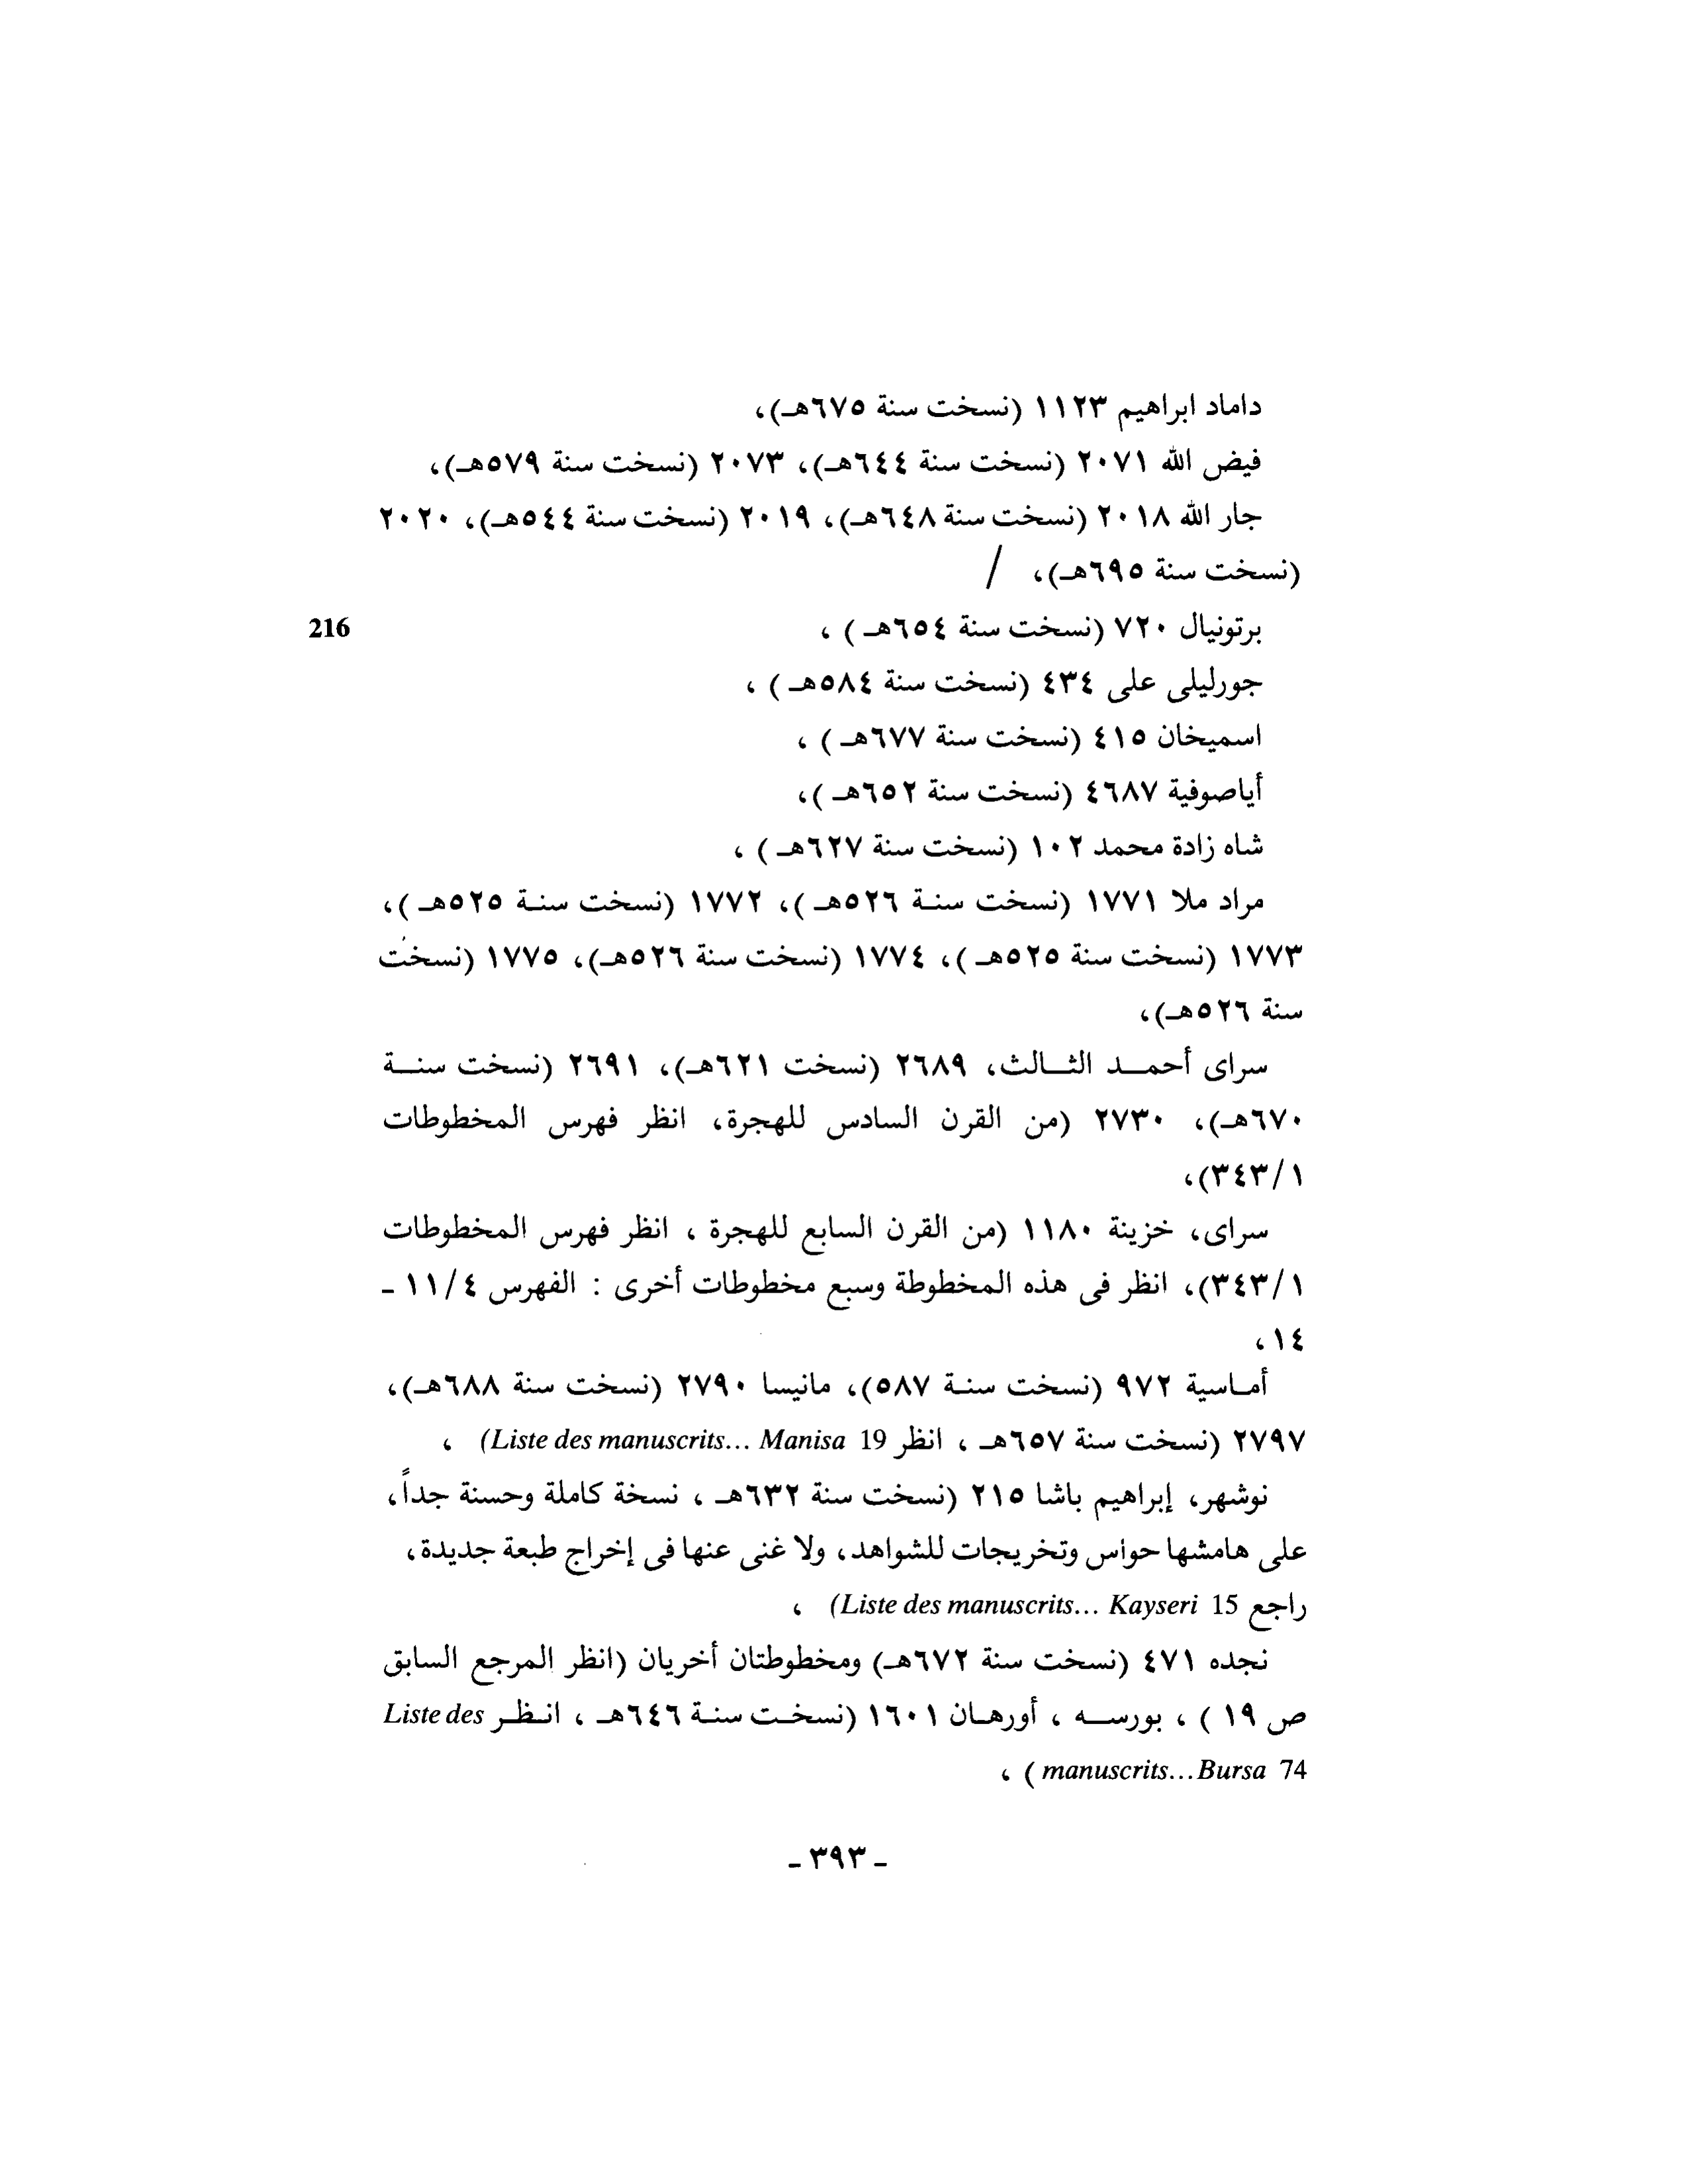 داماد ابراهيم ١١٢٣ (نسخت سنة ٦٧٥هـ)،
فيض الله ٢٠٧١ (نسخت سنة ٦٤٤هـ)، ٢٠٧٣ (نسخت سنة ٥٧٩هـ)،
جار الله ٢٠١٨ (نسخت سنة ٦٤٨هـ)، ٢٠١٩ (نسخت سنة ٥٤٤هـ)، ٢٠٢٠
(نسخت سنة ٦٩٥هـ)، /
برتونيال ٧٢٠ (نسخت سنة ٦٥٤هـ ) ،
216
جورليلى على ٤٣٤ (نسخت سنة ٥٨٤هـ ) ،
اسميخان ٤١٥ (نسخت سنة ٦٧٧هـ ) ،
أياصوفية ٤٦٨٧ (نسخت سنة ٦٥٢هـ )،
شاه زادة محمد ١٠٢ (نسخت سنة ٦٢٧هـ ) ،
مراد ملا ١٧٧١ (نسخت سنة ٥٢٦هـ )، ١٧٧٢ (نسخت سنة ٥٢٥هـ )،
١٧٧٣ (نسخت سنة ٥٢٥هـ )، ١٧٧٤ (نسخت سنة ٥٢٦هـ)، ١٧٧٥ (نسخت
سنة ٥٢٦هـ)،
سراى أحمد الثالث، ٢٦٨٩ (نسخت ٦٢١هـ)، ٢٦٩١ (نسخت سنة
٦٧٠هـ)، ٢٧٣٠ (من القرن السادس للهجرة، انظر فهرس المخطوطات
٣٤٣/١)،
سراى، خزينة ١١٨٠ (من القرن السابع للهجرة ، انظر فهرس المخطوطات
٣٤٣/١)، انظر فى هذه المخطوطة وسبع مخطوطات أخرى : الفهرس ١١/٤ -
١٤،
أماسية ٩٧٢ (نسخت سنة ٥٨٧)، مانيسا ٢٧٩٠ (نسخت سنة ٦٨٨هـ)،
٢٧٩٧ (نسخت سنة ٦٥٧هـ ، انظر Liste des manuscrits... Manisa 19) ،
نوشهر، إبراهيم باشا ٢١٥ (نسخت سنة ٦٣٢هـ ، نسخة كاملة وحسنة جداً،
على هامشها حواس وتخريجات للشواهد، ولا غنى عنها فى إخراج طبعة جديدة،
راجع Liste des manuscrits... Kayseri 15) ،
نجده ٤٧١ (نسخت سنة ٦٧٢هـ) ومخطوطتان أخريان (انظر المرجع السابق
ص ١٩ ) ، بورسه ، أورهان ١٦٠١ (نسخت سنة ٦٤٦هـ ، انظر Liste des
manuscrits...Bursa 74 ) ،
- ٣٩٣ -